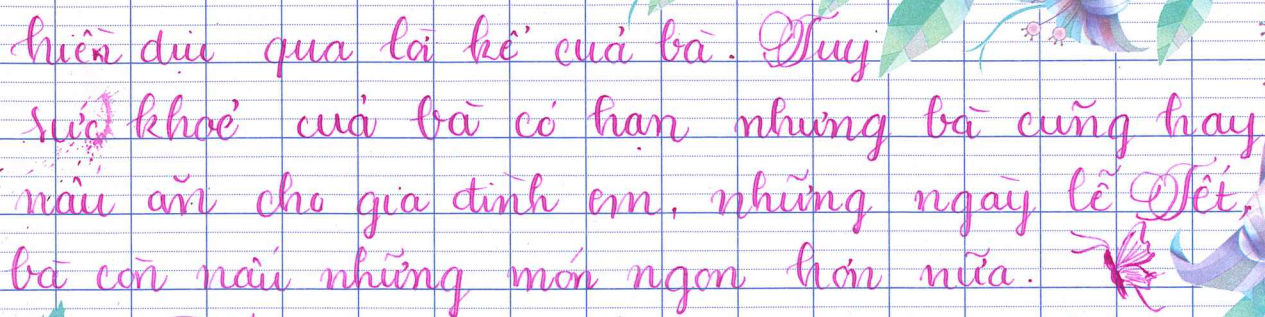 hiền dịu qua lời kể của bà. Tuy
sức khoẻ của bà có hạn nhưng bà cũng hay
nấu ăn cho gia đình em, những ngày lễ Tết,
bà còn nấu những món ngon hơn nữa.